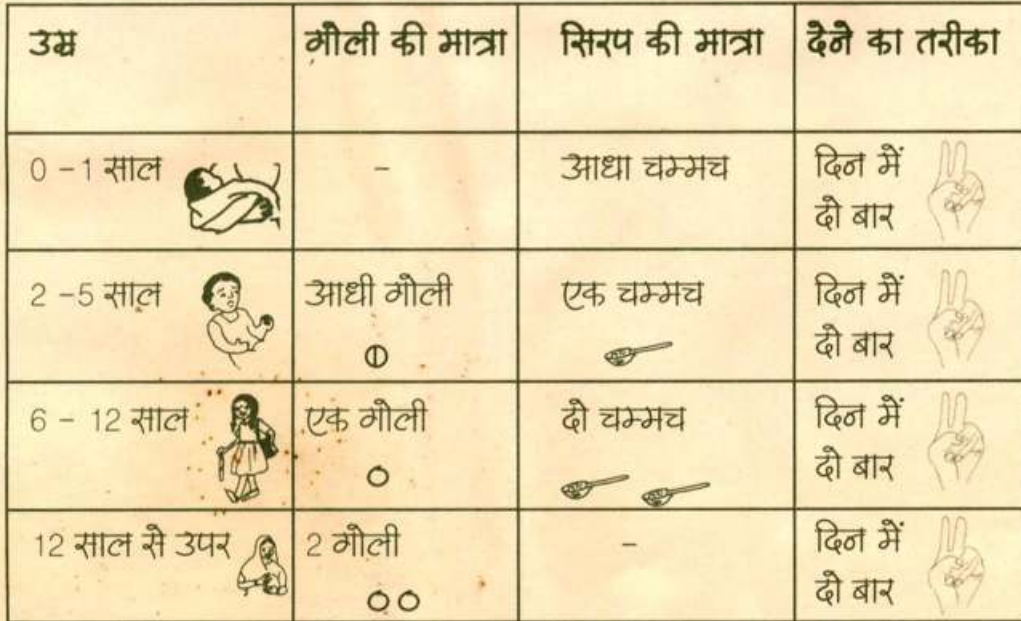 उम्र गोली की मात्रा सिरप की मात्रा देने का तरीका
0 - 1 साल - आधा चम्मच दिन में
दो बार
2 - 5 साल आधी गोली एक चम्मच दिन में
दो बार
6 - 12 साल एक गोली दो चम्मच दिन में
दो बार
12 साल से उपर 2 गोली - दिन में
दो बार